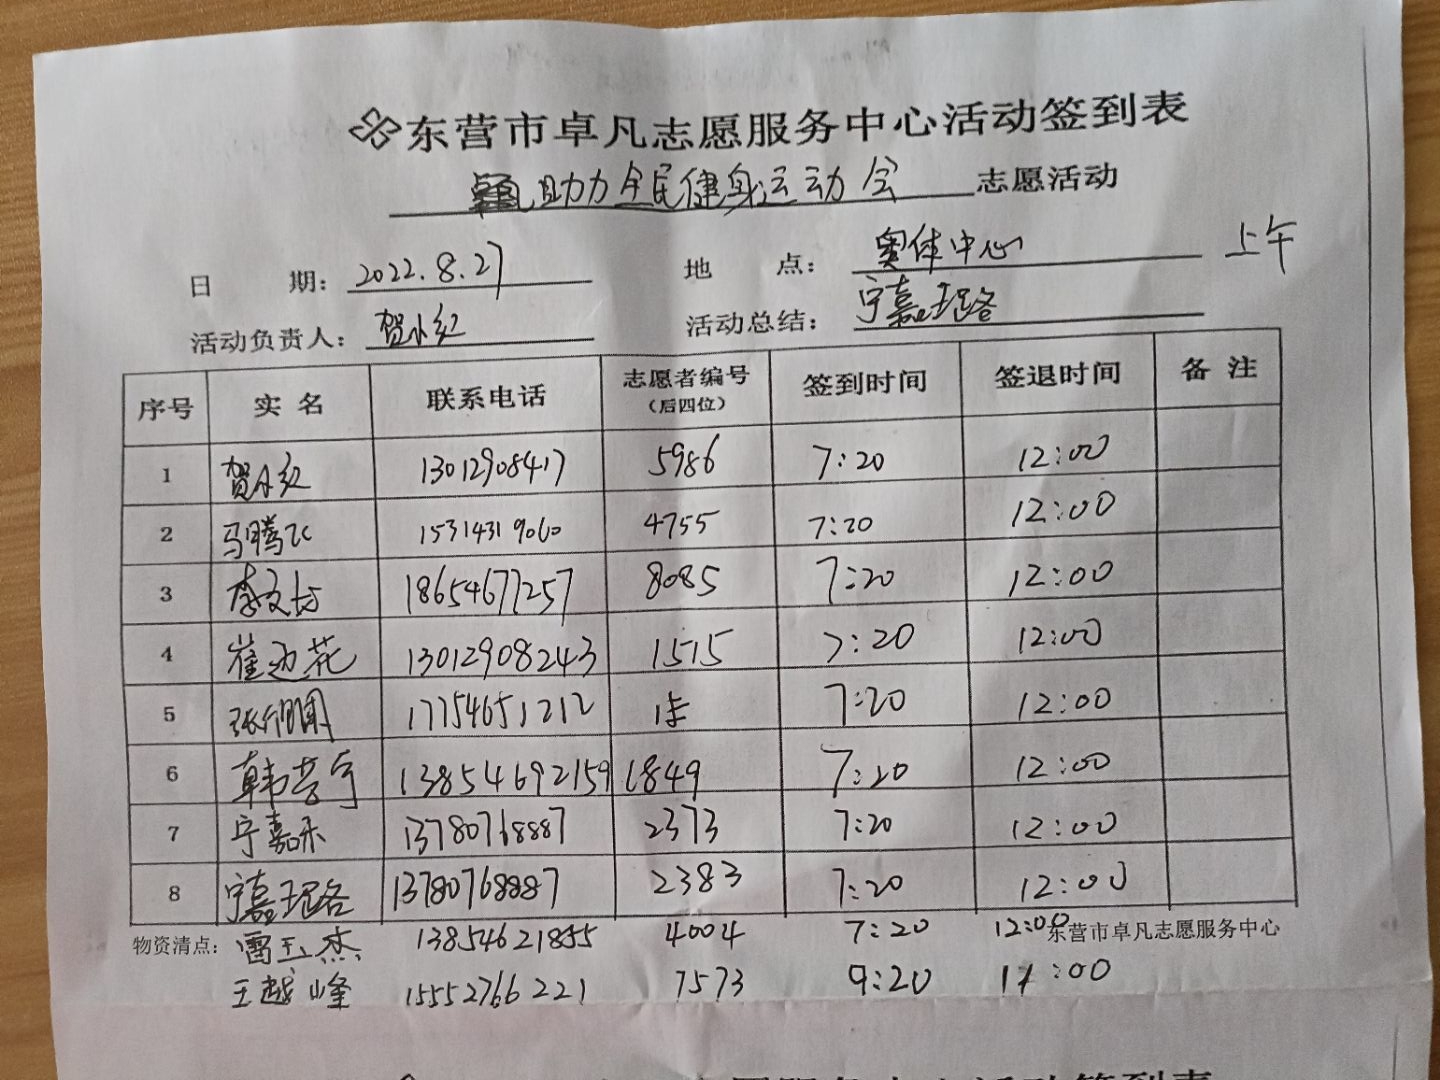 东营市卓凡志愿服务中心活动签到表
助力全民健身运动会 志愿活动
日 期: 2022.8.27 地 点: 奥体中心 上午
活动负责人: 贺小红 活动总结: 宁嘉珞
序号 实 名 联系电话 志愿者编号 (后四位) 签到时间 签退时间 备 注
1 贺小红 13012908417 5986 7:20 12:00
2 马腾飞 15314319060 4755 7:20 12:00
3 李文芳 18654677257 8085 7:20 12:00
4 崔迎花 13012908243 1515 7:20 12:00
5 张 17754651212 7:20 12:00
6 韩芸宁 13854692159 1849 7:20 12:00
7 宁嘉禾 13780768887 2373 7:20 12:00
8 宁嘉珞 13780768887 2383 7:20 12:00
物资清点: 雷玉杰 13854621855 4004 7:20 12:00 东营市卓凡志愿服务中心
王越峰 15552766221 7573 9:20 11:00